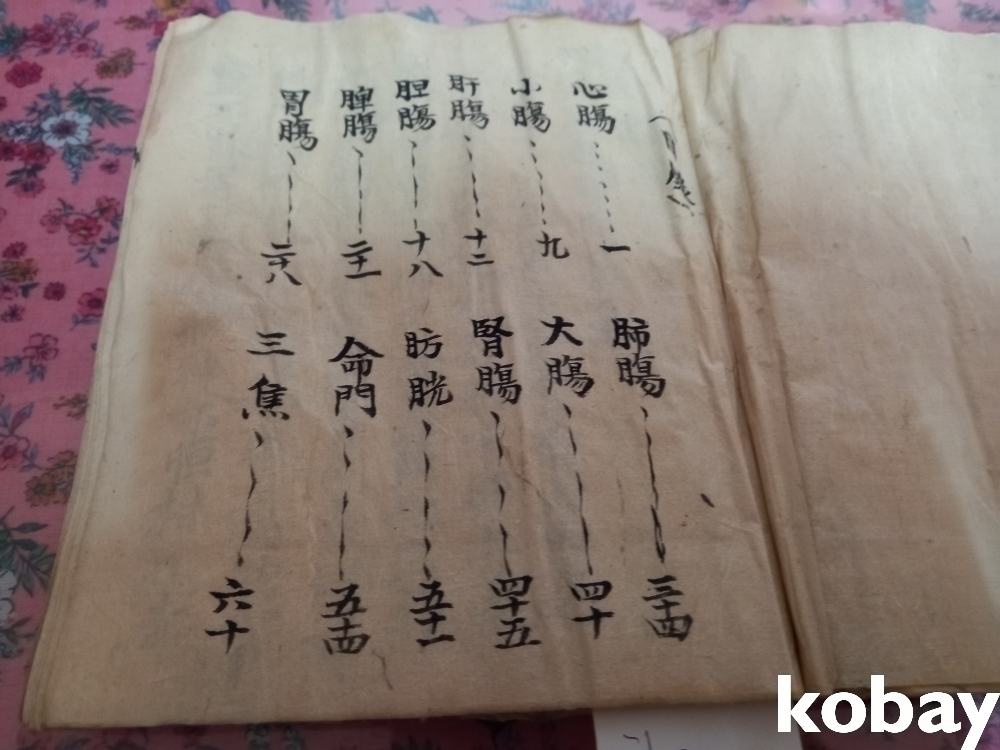 心腸 一
小腸 九
肝腸 十二
胆腸 十八
脾腸 二十一
胃腸 二十八
肺腸 三十四
大腸 四十
腎腸 四十五
肪胱 五十一
命門 五十四
三焦 六十
kobay